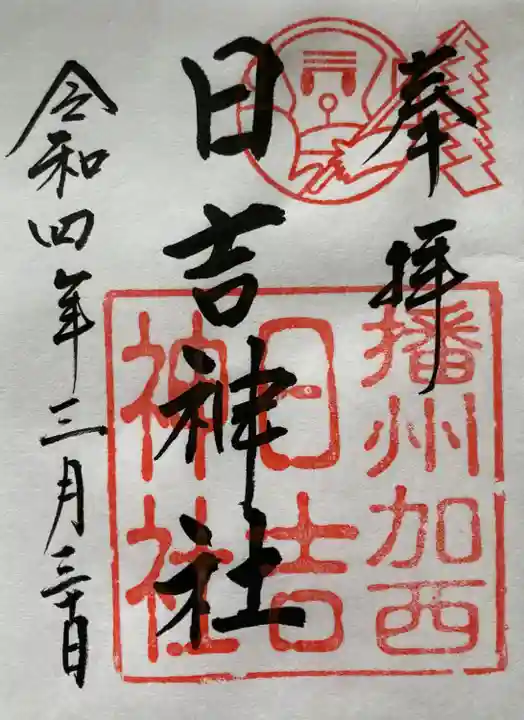 奉拝
播州加西
日吉神社
日吉神社
令和四年三月三十日